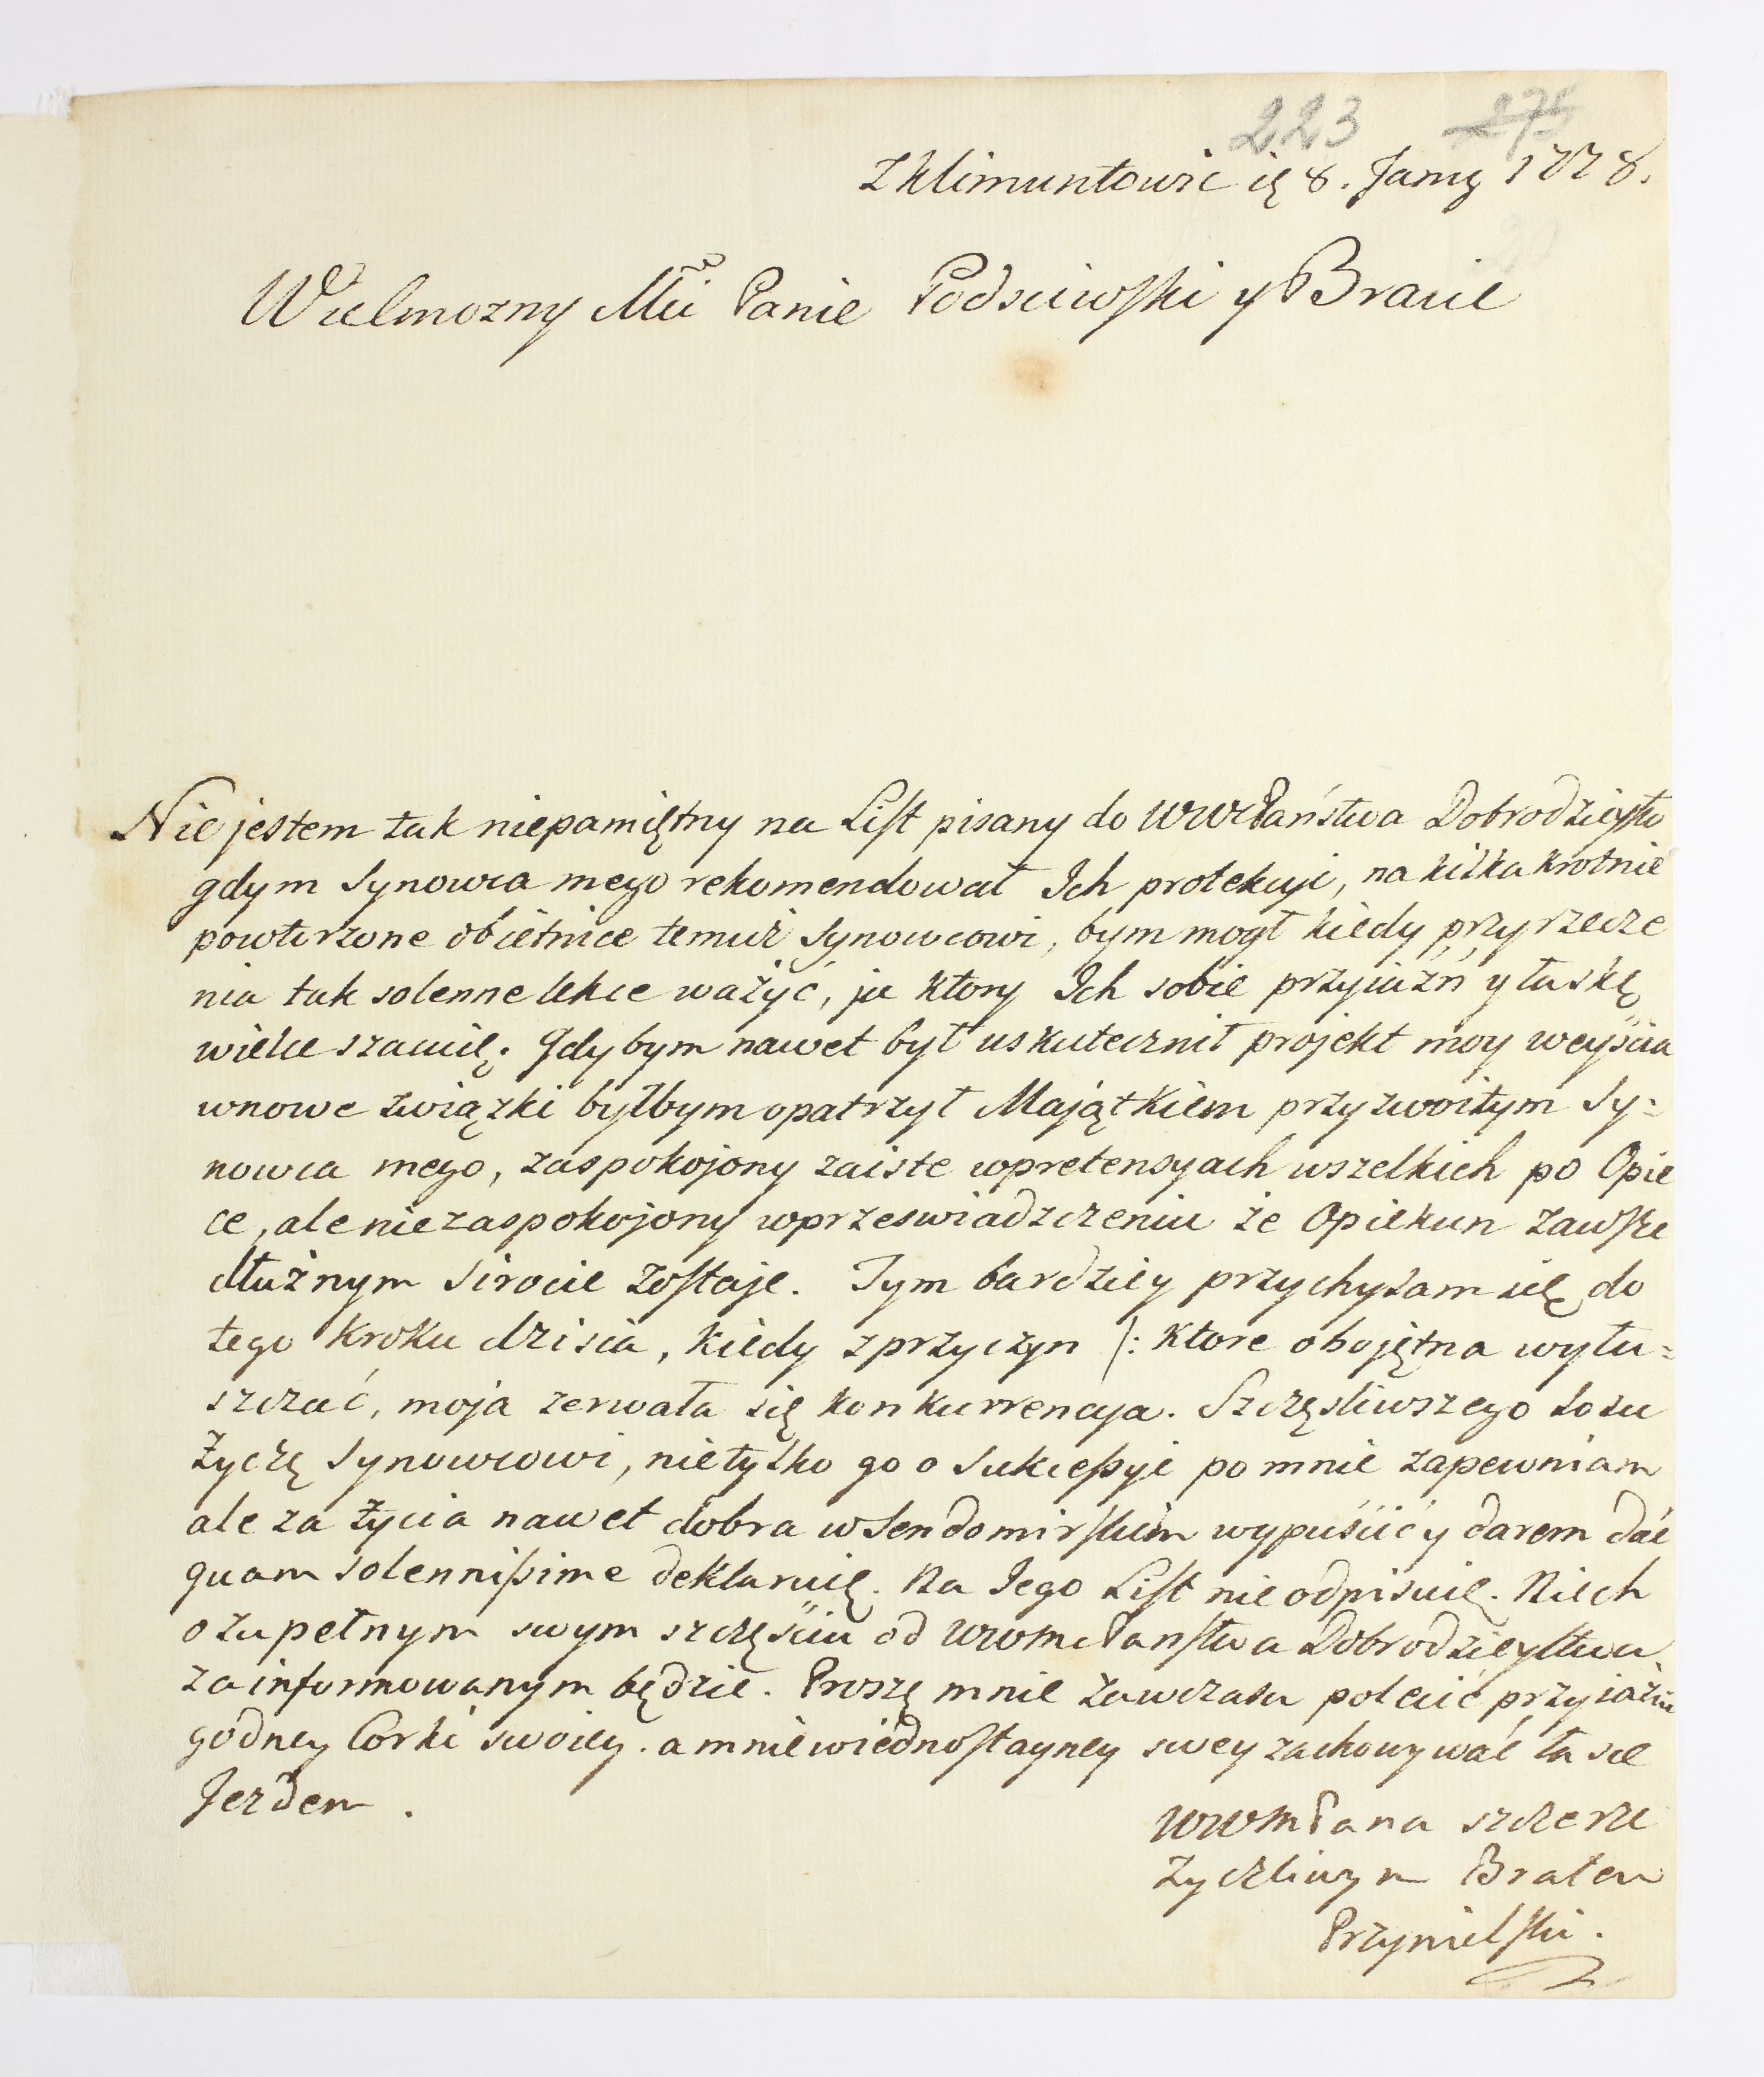 223 275
z Klimuntowic 8. Jan 1778.
Wielmozny Mći Panie Podsciwski y Bracie
Nie jestem tak niepamiętny na List pisany do WWćPaństwa Dobrodzieystw
gdym Synowca mego rekomendował Ich protekcyi, na kilkakrotnie
powtorzone obietnice temuż Synowcowi, bym mogł kiedy przyrzecze
nia tak solenne lekce ważyć, ja ktory Ich sobie przyiaźń y łaskę
wielce szacuię. Gdybym nawet był uskutecznił projekt moy weyścia
wnowe związki byłbym opatrzył Majątkiem przyzwoitym Sy:
nowca mego, zaspokojony zaiste wpretensyach wszelkich po Opie
ce, ale niezaspokojony wprzeswiadczeniu że Opiekun zawsze
dłużnym Sirocie zostaje. Tym bardziey przychylam się do
tego kroku dzisia, kiedy z przyczyn /: ktore obojętna wyłu=
szczać, moja zerwała się konkurrencya. Szczęsliwszego losu
życzę Synowcowi, nietylko go o Sukcessyi po mnie zapewniam
ale za życia nawet dobra w Sendomirskim wypuścić y darem dać
quam solennissime deklaruię. Na Jego List nie odpisuię. Niech
o zupełnym swym szczęściu od WWMPaństwa Dobrodzieystwa
zainformowanym będzie. Proszę mnie zawczasu polecić przyiaźni
godney Corki swoiey. a mnie wiednostayney swey zachowywać łasce
Jezdem.
WWMPana szczerze
życzliwym Bratem